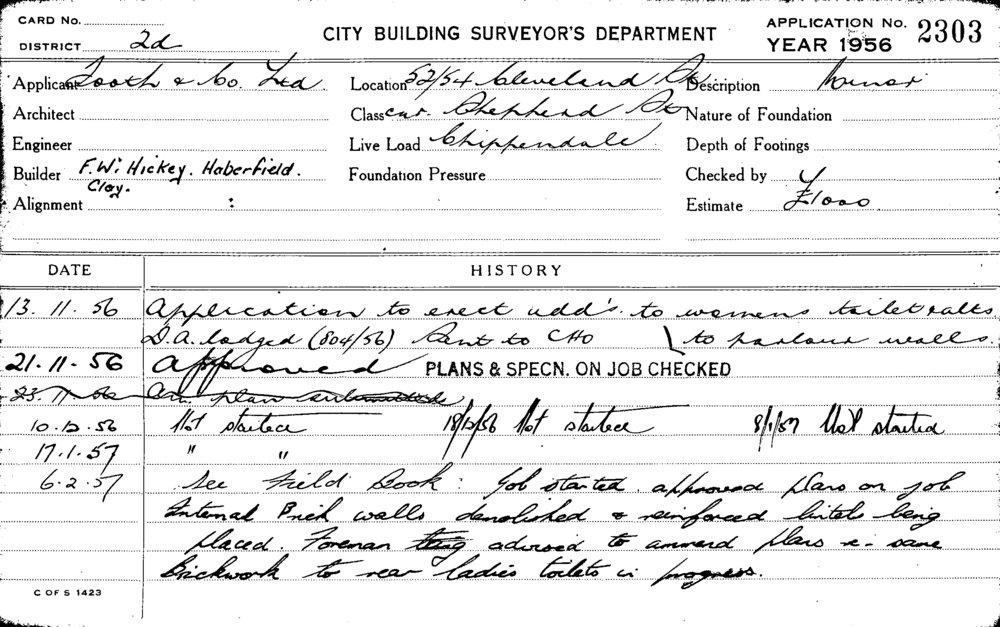 CARD No.
DISTRICT 2d
CITY BUILDING SURVEYOR'S DEPARTMENT
APPLICATION No. 2303
YEAR 1956
Applicant Tooth & Co. Ltd Location 52/54 Cleveland St Description Minor
Architect Class cnr. Shepherd St Nature of Foundation
Engineer Live Load Chippendale Depth of Footings
Builder F.W. Hickey. Haberfield. Foundation Pressure Checked by
Clay.
Alignment : Estimate £1000
DATE HISTORY
13. 11. 56 Application to erect add's. to womens toilet & alts
D.A. lodged (804/56) Sent to CHO to parlour walls.
21. 11. 56 Approved PLANS & SPECN. ON JOB CHECKED
23. 11. 56 Am. plan submitted
10. 12. 56 Not started 18/12/56 Not started 8/1/57 Not started
17. 1. 57 " "
6. 2. 57 See Field Book: Job started. approved plans on job
Internal Brick walls demolished & reinforced lintels being
placed. Foreman advised to ammend plans re- same
Brickwork to rear ladies toilets in progress.
C OF S 1423